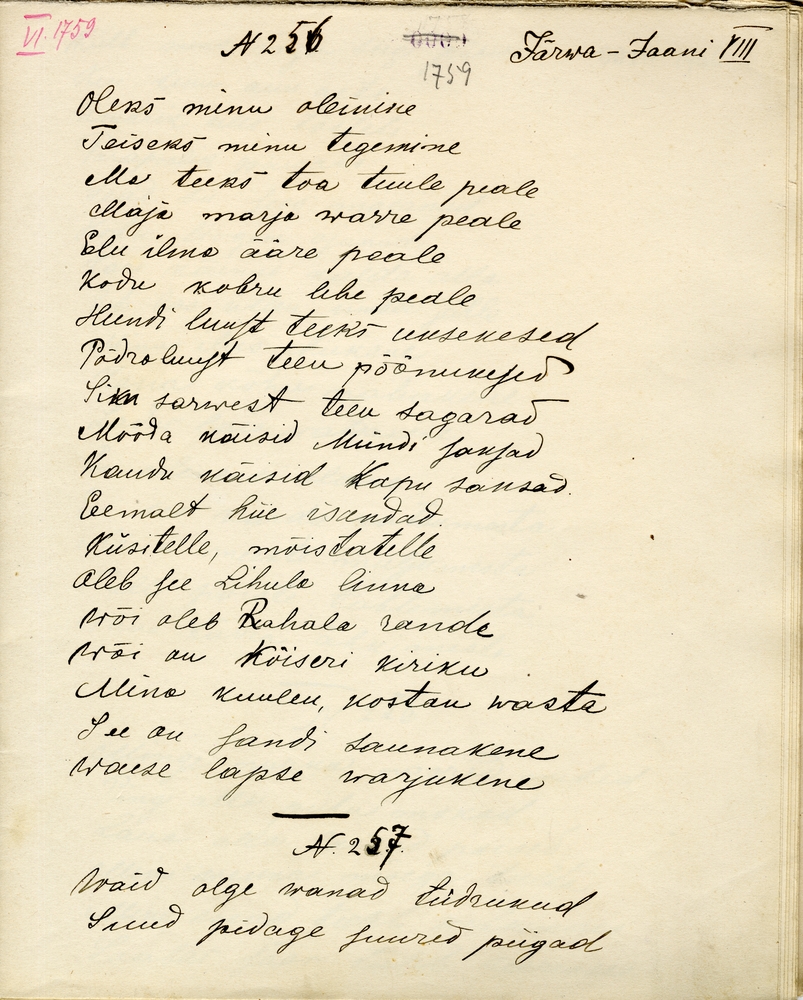 VI. 1759
N 256
1759
Järwa-Jaani VIII
Oleks minu olemine
Teiseks minu tegemine
Ma teeks toa tuule peale
Maja marja warre peale
Elu ilma ääre peale
Kodu kobru lehe peale
Hundi luust teeks uksekesed
Põdra luust teen põõnukesed
Siku sarwest teen sagarad
Mööda käisid Mündi saksad
Kaudu käisid Kapu saksad.
Eemalt hüe isandad.
Küsitelle, mõistatelle
Oleb see Lihula linna
Wõi oleb Rahala randa
Wõi on Kõiseri kiriku
Mina kuulen, kostan wasta
See on sandi saunakene
Waese lapse warjukene
N. 257.
Waid olge wanad tüdrukud
Suud pidage suured piigad